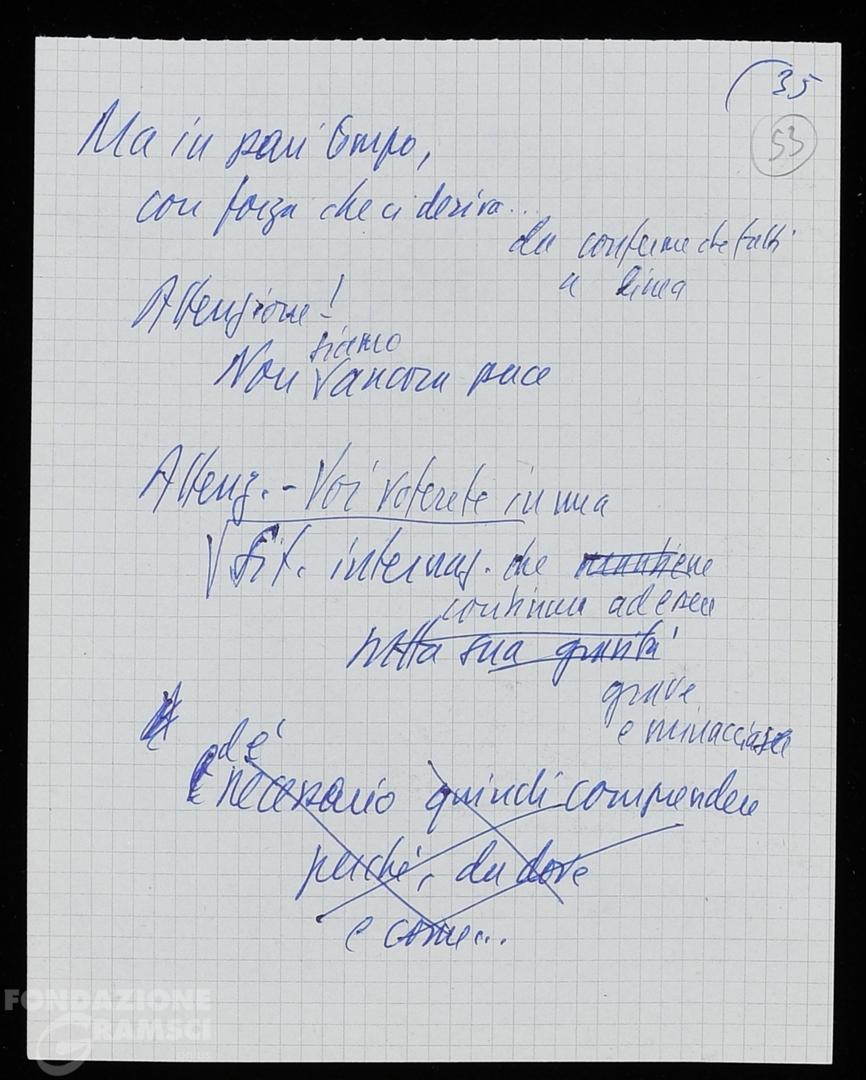 35
53
Ma in pari tempo,
con forza che ci deriva..
da conferme che fatti
a linea
Attenzione!
siamo
Non ancora pace
Attenz. - Voi voterete in una
sit. internaz. che mantiene
continua ad essere
nella sua gravità
grave
e minacciosa
ed è
necessario quindi comprendere
perché, da dove
e come...
FONDAZIONE
GRAMSCI